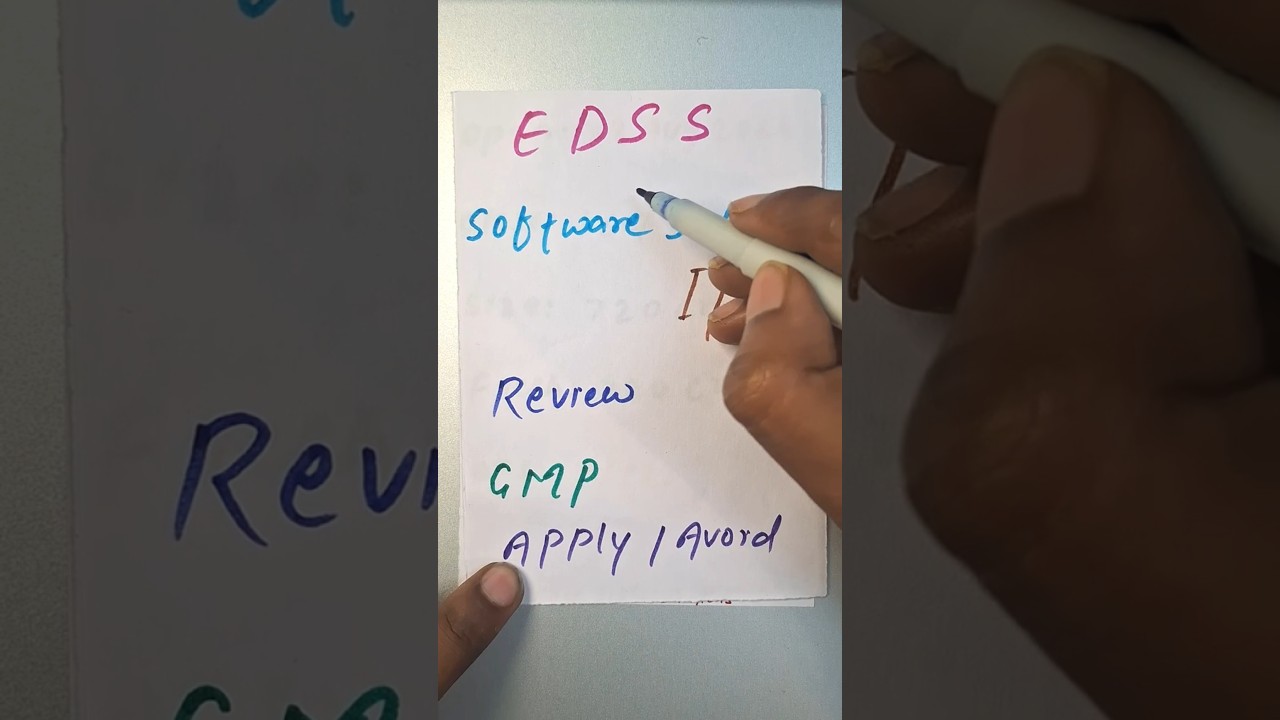 EDSS
Software
Review
GMP
Apply / Avoid